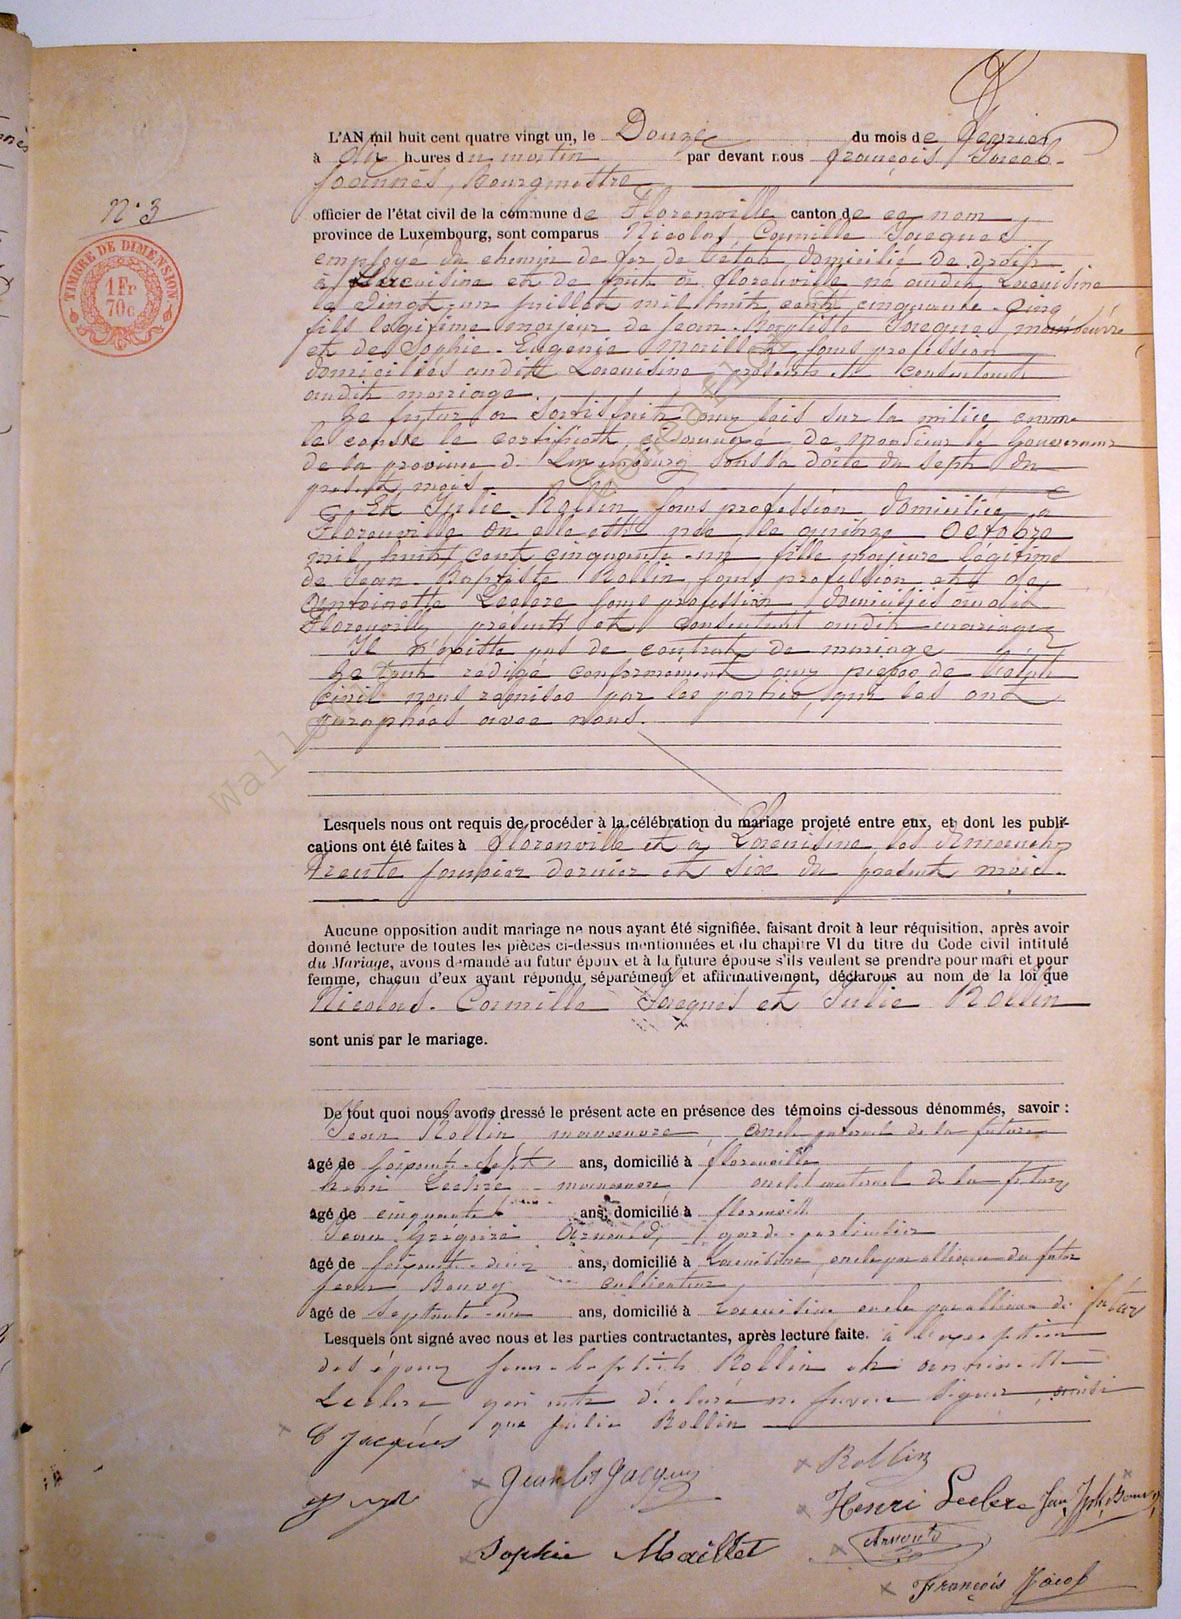 N° 3
TIMBRE DE DIMENSION
1 Fr
70 c
L'AN mil huit cent quatre vingt un, le Douze du mois de fevrier
à dix heures du matin par devant nous françois Jacob
Joannès, Bourgmestre
officier de l'état civil de la commune de Florenville canton de ce nom
province de Luxembourg, sont comparus Nicolas, Camille Jacques,
employé du chemin de fer de l'etat, domicilié de droit
à Lacuisine et de fait à florenville né audit Lacuisine
le vingt-un juillet mil huit cent cinquante-cinq
fils légitime majeur de Jean-Baptiste Jacques, manoeuvre
et de Sophie-Eugénie Maillet sans profession
domiciliés audit Lacuisine présents et consentants
audit mariage.
Le futur a satisfait aux lois sur la milice comme
le constate le certificat de Monsieur le Gouverneur
de la province de Luxembourg sous la date du sept du
present mois
Et Julie Rollin sans profession domiciliée à
Florenville où elle est née le quinze Octobre
mil huit cent cinquante-un fille majeure légitime
de Jean-Baptiste Rollin, sans profession et de
Antoinette Leclere sans profession domiciliés audit
Florenville, presents et consentant audit mariage
Il n'existe pas de contrat de mariage
Le tout rédigé conformément aux pièces de l'état
civil nous remises par les parties, qui les ont
paraphées avec nous.
Lesquels nous ont requis de procéder à la célébration du mariage projeté entre eux, et dont les publi-
cations ont été faites à Florenville et à Lacuisine les dimanches
trente janvier dernier et six du présent mois.
Aucune opposition audit mariage ne nous ayant été signifiée, faisant droit à leur réquisition, après avoir
donné lecture de toutes les pièces ci-dessus mentionnées et du chapitre VI du titre du Code civil intitulé
du Mariage, avons demandé au futur époux et à la future épouse s'ils veulent se prendre pour mari et pour
femme, chacun d'eux ayant répondu séparément et affirmativement, déclarons au nom de la loi que
Nicolas-Camille Jacques et Julie Rollin
sont unis par le mariage.
De tout quoi nous avons dressé le présent acte en présence des témoins ci-dessous dénommés, savoir :
Jean Rollin, manoeuvre, oncle paternel de la future
âgé de soixante-sept ans, domicilié à florenville
Henri Leclère - manoeuvre, oncle maternel de la future
âgé de cinquante ans, domicilié à florenville
Jean Grégoire Arnould, garde particulier
âgé de soixante- ans, domicilié à Lacuisine, oncle par alliance du futur
Jean Bouvy cultivateur
âgé de septante-un ans, domicilié à Lacuisine oncle par alliance du futur
Lesquels ont signé avec nous et les parties contractantes, après lecture faite. à l'exception
des époux Jean-baptiste Rollin et antoinette
Leclere qui ont déclaré ne savoir signer, ainsi
que Julie Rollin
C Jacques
Jean bte Jacques
Rollin
Henri Leclere
Sophie Maillet
François Jacob